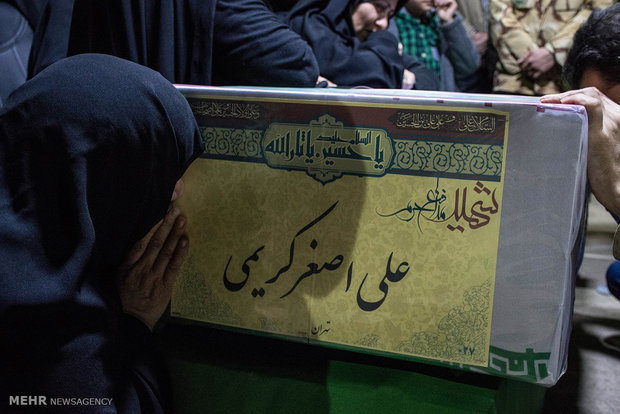 السلام علیک
یا حسین یا ثارالله
شهید
مدافع حرم
علی اصغر کریمی
تهران
۰۲۷
MEHR NEWSAGENCY